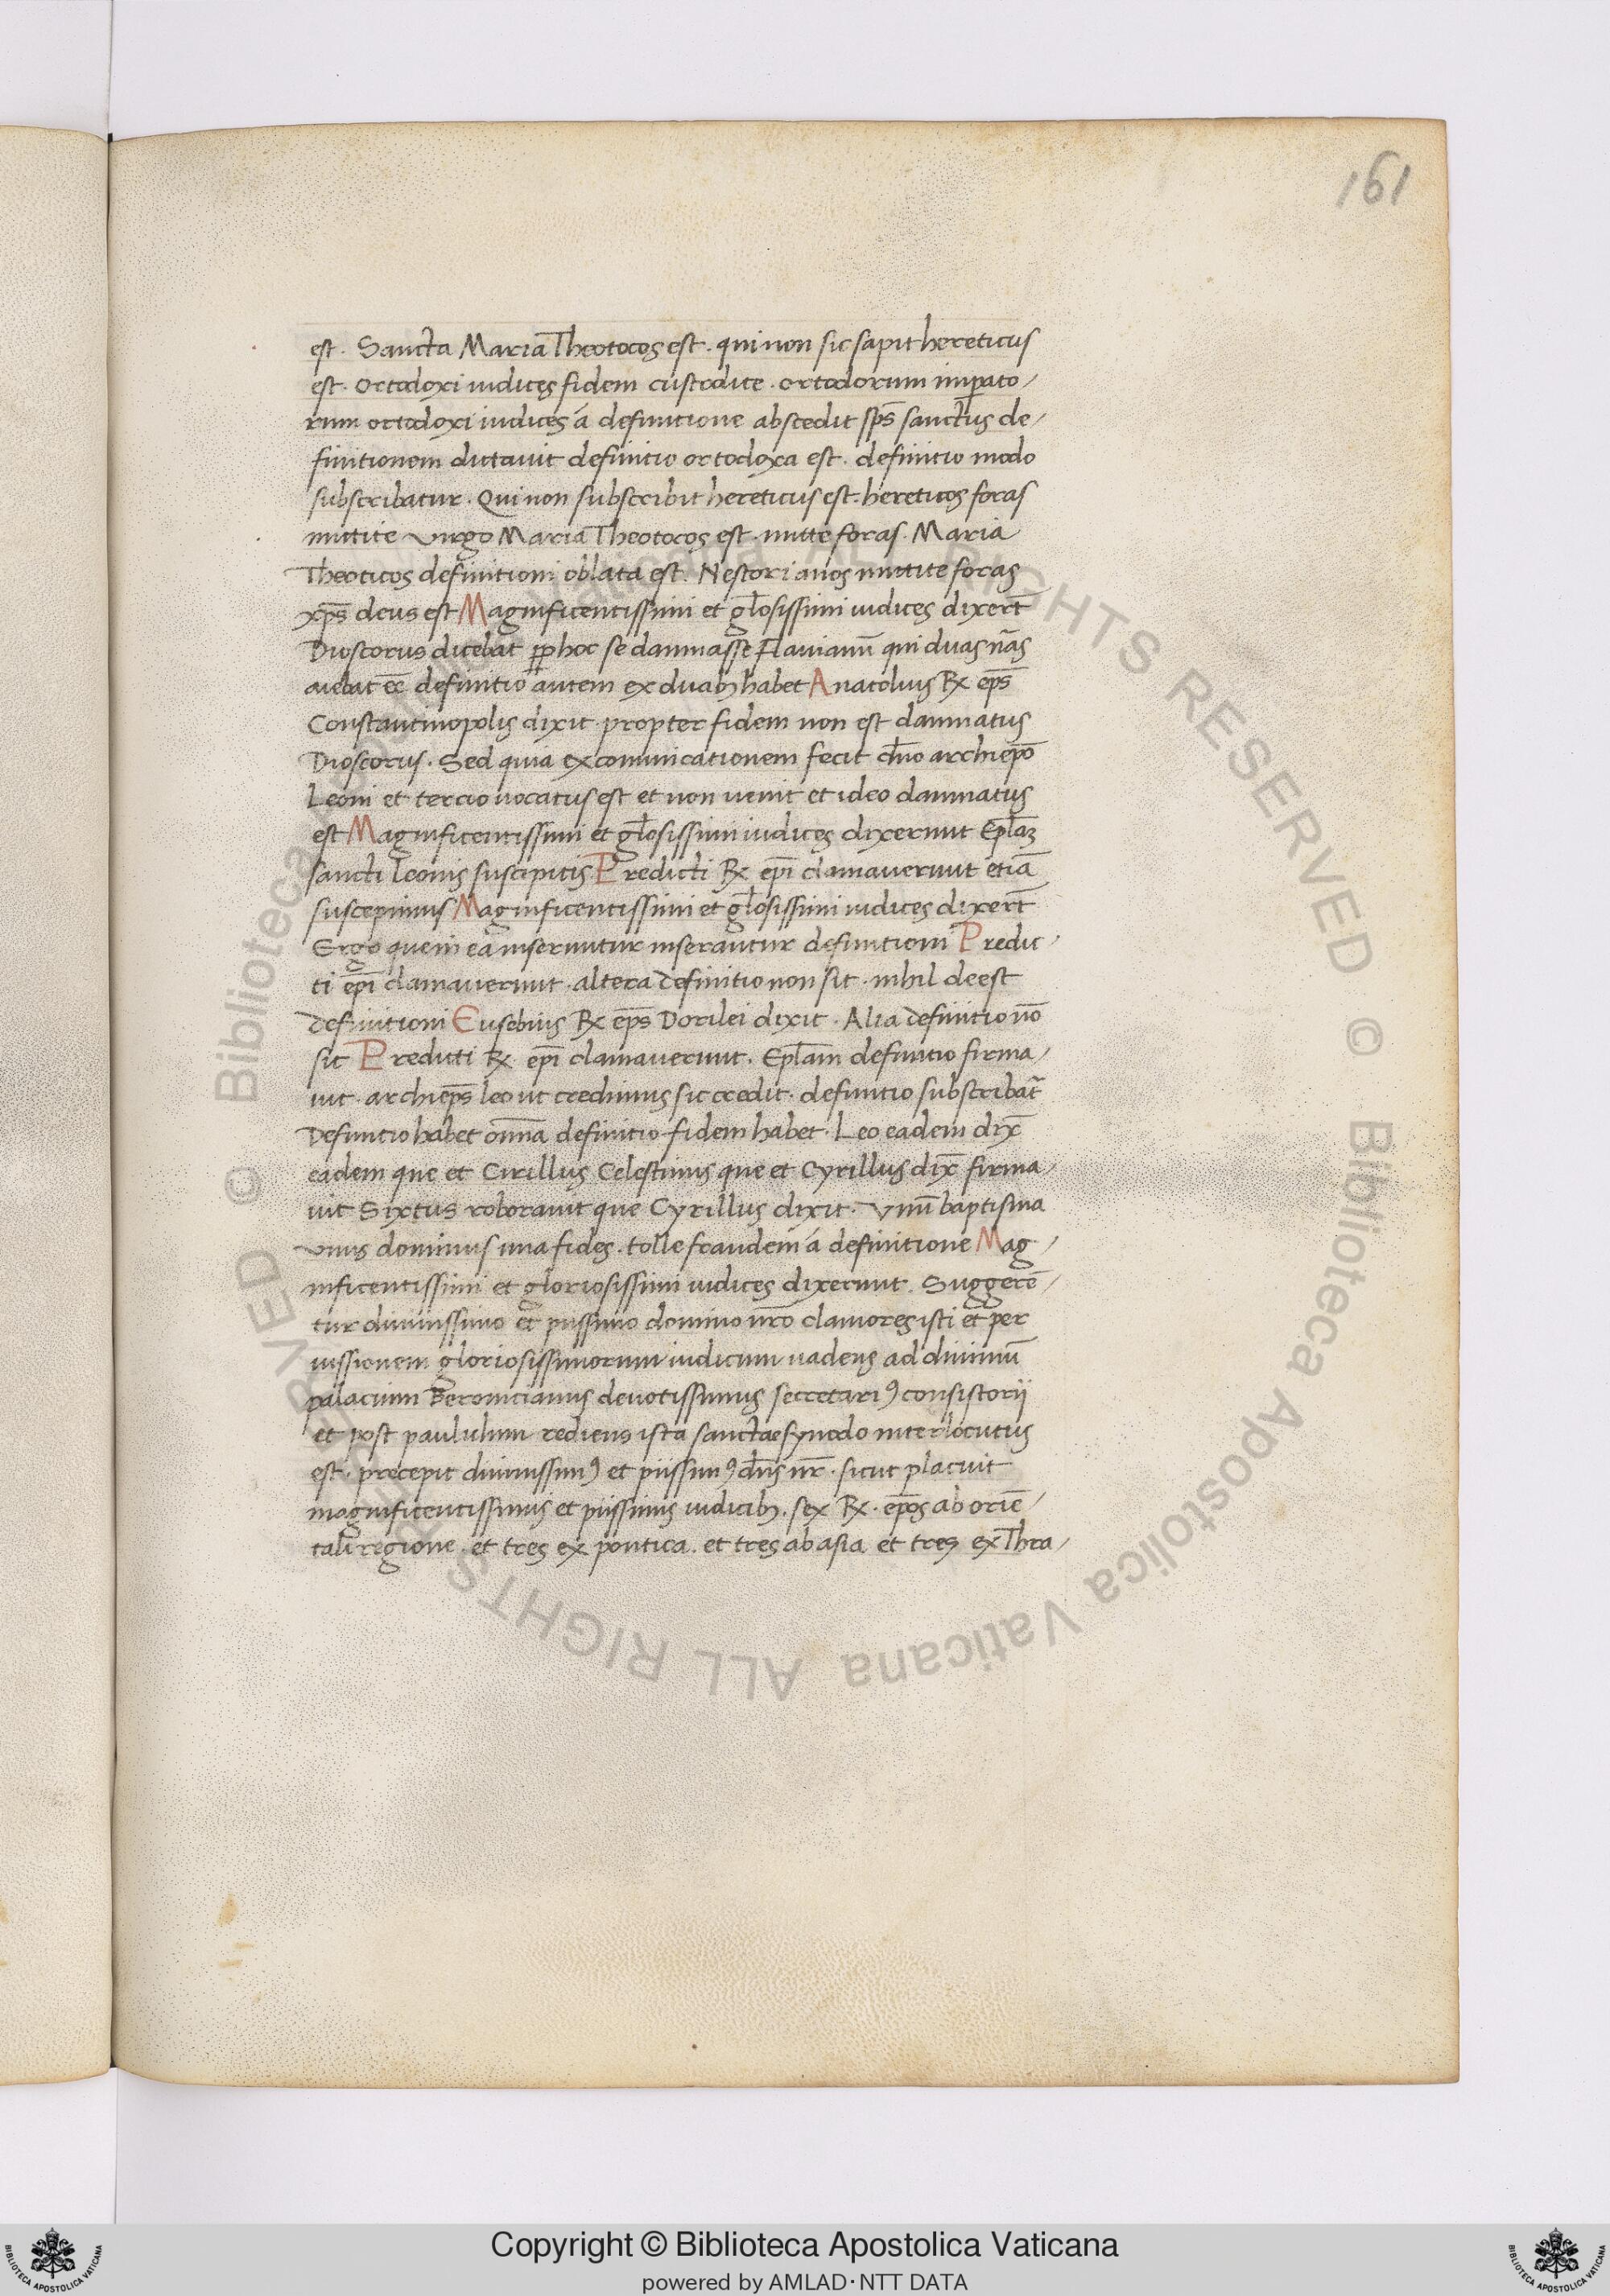 161
est. Sancta Maria Theotocos est. qui non sic sapit hereticus
est. Ortodoxi iudices fidem custodite. ortodorum imꝑato/
rum ortodoxi iudices á definitione abscedit sp̄s sanctus de/
finitionem dictauit definitio ortodoxa est. definitio modo
subscribatur. Qui non subscribit hereticus est. hereticos foras
mittite virgo Maria Theotocos est. mitte foras. Maria
Theoticos definitioni oblata est. Nestorianos mittite foras
xp̄s deus est Magnificentissimi et gl̄osissimi iudices dixer̄t
Dioscorus dicebat ꝓp hoc se damnasse Flavianū qui duas nās
aiebat eē definitio autem ex duabꝫ habet Anatolius Rx ep̄s
Constantinopolis dixit propter fidem non est damnatus
Dioscorus. Sed quia excomunicationem fecit dn̄o archiep̄o
Leoni et tercio uocatus est et non uenit et ideo damnatus
est Magnificentissimi et gl̄osissimi iudices dixerunt Epl̄aꝫ
sancti Leonis suscipitis Predicti Rx ep̄i clamaverunt etiā
suscepimus Magnificentissimi et gl̄osissimi iudices dixer̄t
Ergo que in ea inseruntur inserantur definitioni Predic/
ti ep̄i clamauerunt. altera definitio non sit. nihil deest
definitioni Eusebius Rx ep̄s Dorilei dixit. Alia definitio nō
sit Predicti Rx ep̄i clamaverunt. Epl̄am definitio firma/
uit. archiep̄s leo ut credimus sic credit. definitio subscribat̄
Definitio habet omn̄a definitio fidem habet. Leo eadem dix̄
eadem que et Cirillus Celestinus que et Cyrillus dix̄ firma/
uit Sixtus roborauit que Cyrillus dixit. Vnū baptisma
vnus dominus una fides. tolle fraudem á definitione Mag/
nificentissimi et gloriosissimi iudices dixerunt. Suggerē/
tur diuinissimo et piissimo domino nr̄o clamores isti et per
iussionem gloriosissimorum iudicum uadens ad diuinū
palacium Beronicianus deuotissimus secretariꝰ consistorii
et post paululum rediens ista sanctae synodo interlocutus
est. precepit diuinissimꝰ et piissimꝰ dn̄s nr̄. sicut placuit
magnificentissimis et piissimis iudicibꝫ. sex Rx. ep̄os ab oriē/
tali regione. et tres ex pontica. et tres ab asia et tres ex Thra/
© Biblioteca Apostolica Vaticana ALL RIGHTS RESERVED © Biblioteca Apostolica Vaticana ALL RIGHTS RESERVED
BIBLIOTECA APOSTOLICA VATICANA
Copyright © Biblioteca Apostolica Vaticana
powered by AMLAD·NTT DATA
BIBLIOTECA APOSTOLICA VATICANA